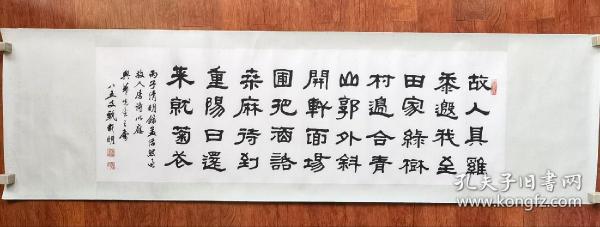 故人具雞
黍邀我至
田家綠樹
村邊合青
山郭外斜
開軒面場
圃把酒話
桑麻待到
重陽日還
來就菊花
丙子清明錄孟浩然過
故人居詩以應
先生之
八五叟戴明
孔夫子旧书网
www.kongfz.com